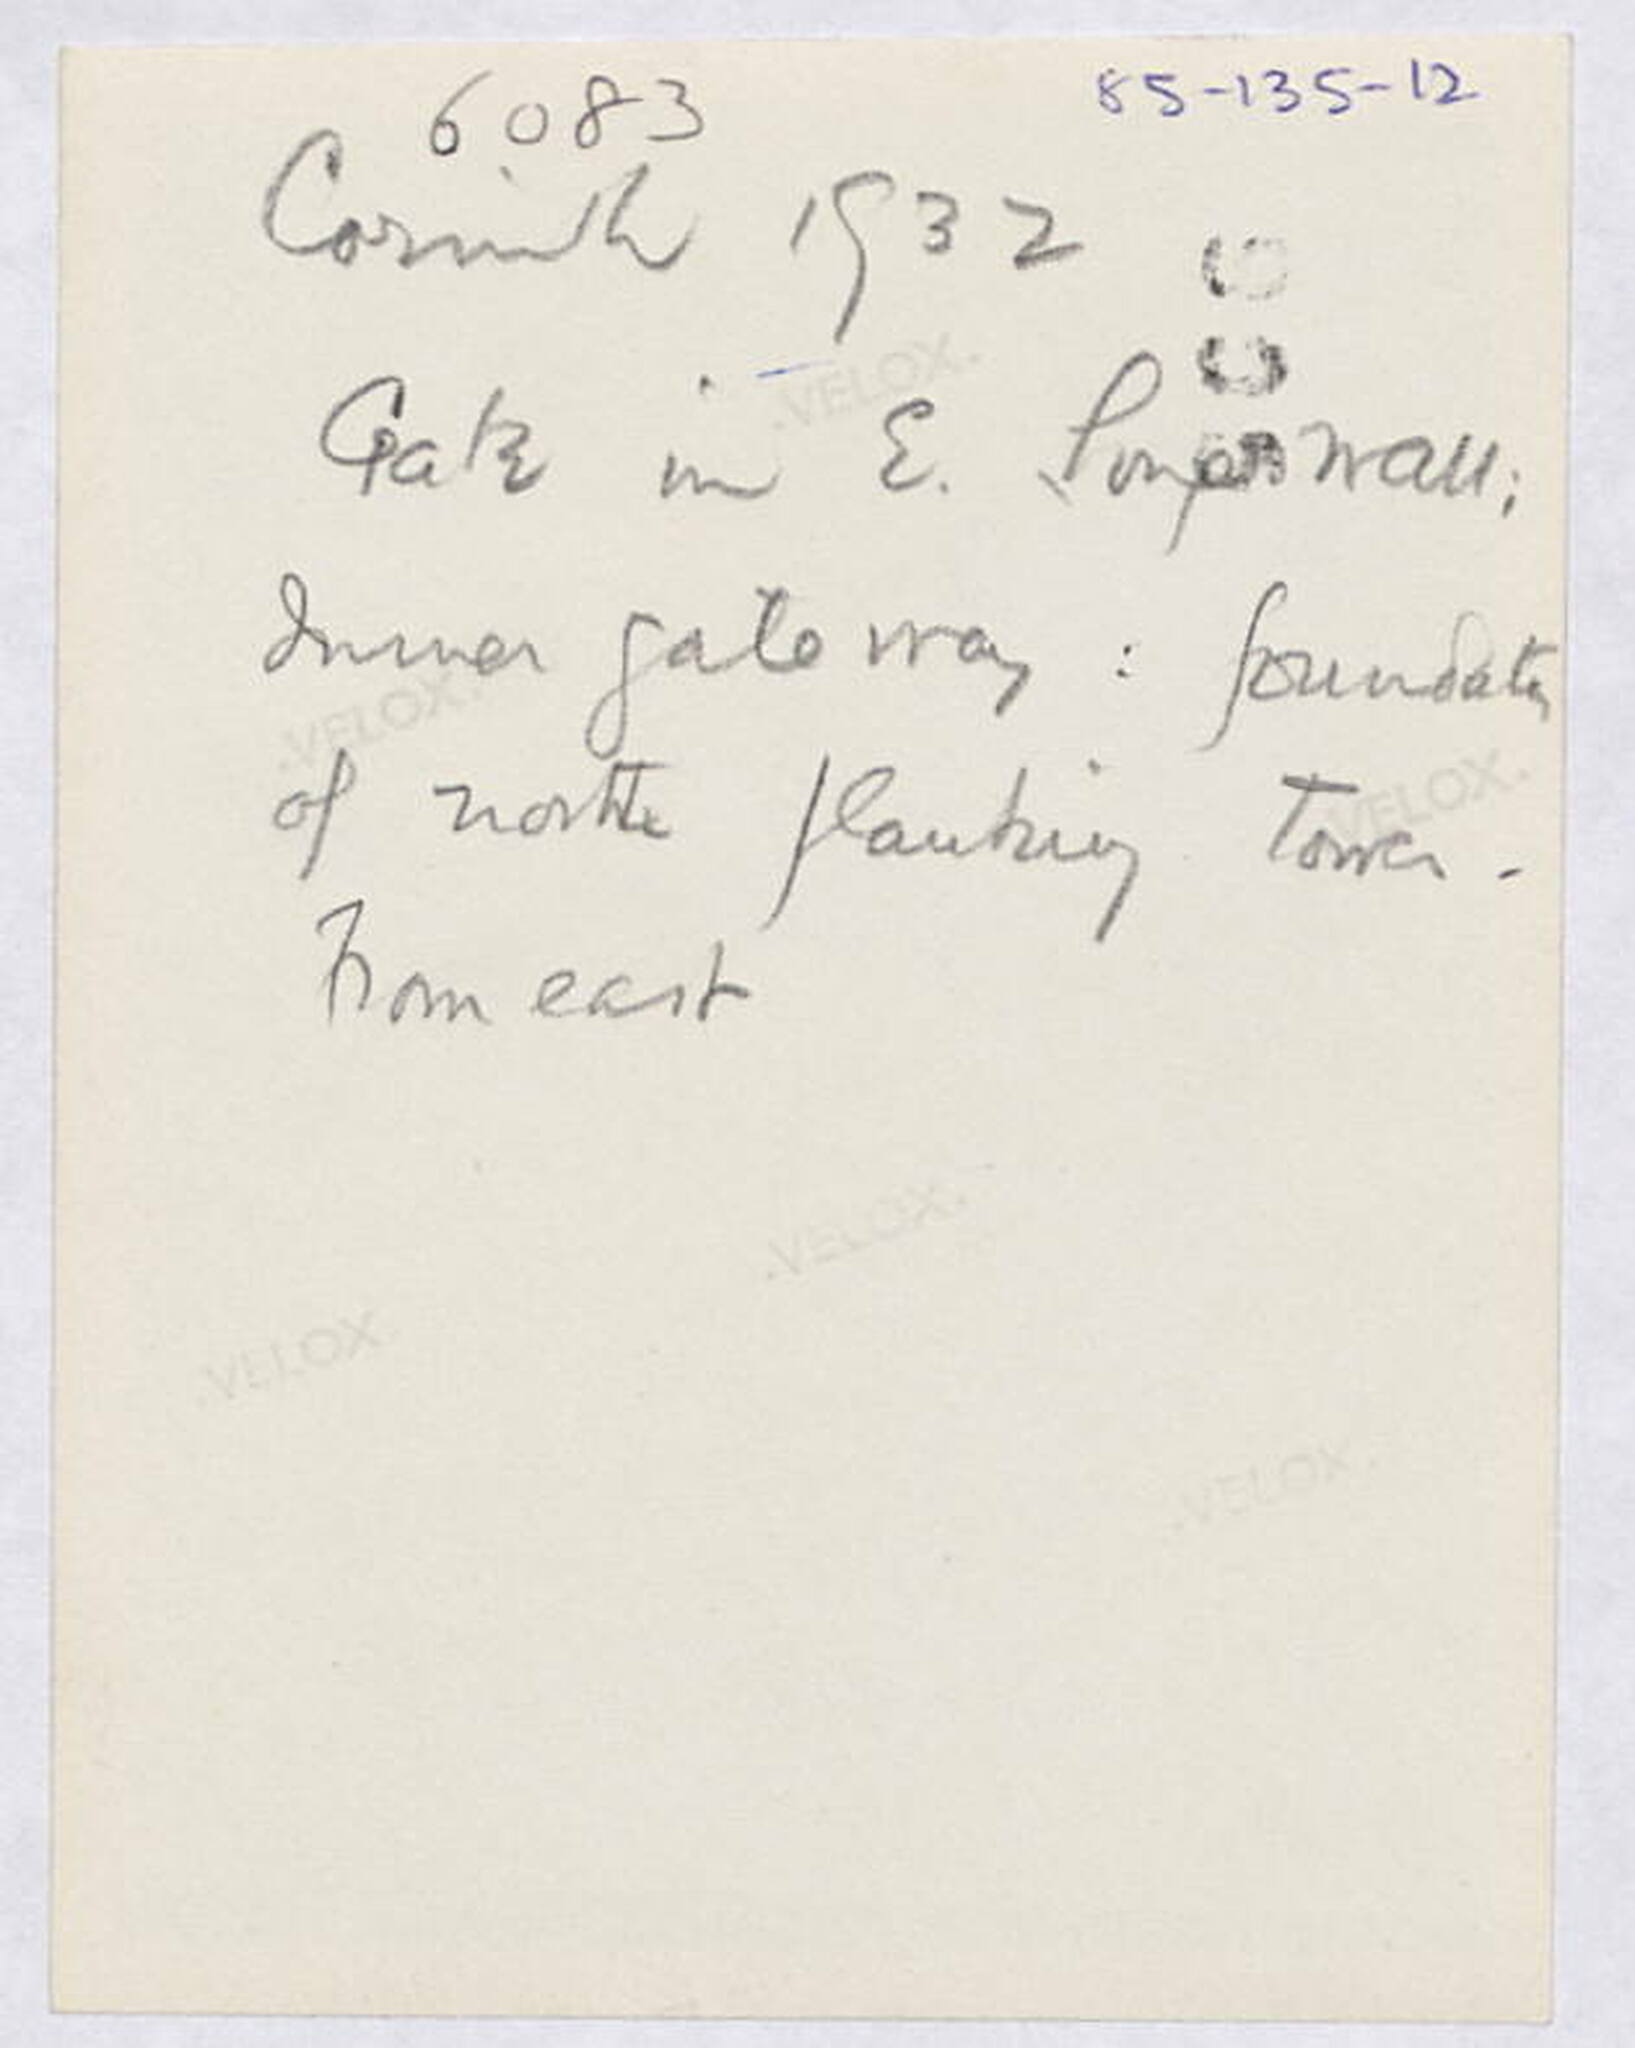 6083 85-135-12
Corinth 1932
.VELOX.
Gate in E. Long wall;
Inner gateway : foundation
.VELOX.
of north flanking tower -
VELOX.
From east
.VELOX.
.VELOX
.VELOX.